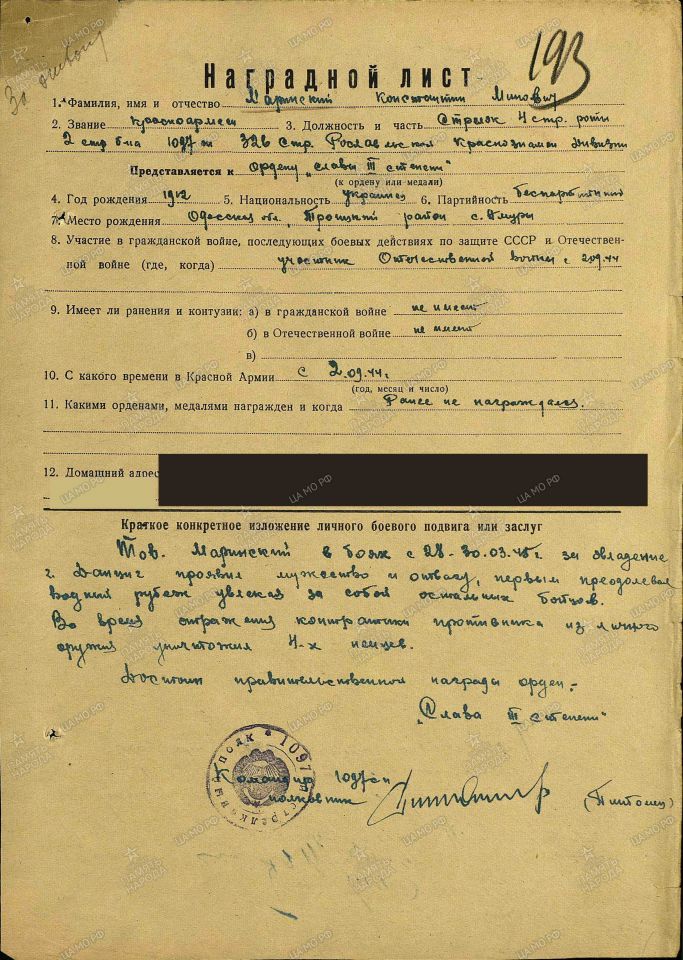 За отвагу
193
Наградной лист
1. Фамилия, имя и отчество Маринский Константин Минович
2. Звание красноармеец 3. Должность и часть Стрелок 4 стр. роты
2 стр б-на 1097 сп 326 Стр. Рославльская Краснознамен дивизии
Представляется к Ордену „Славы III степени"
(к ордену или медали)
4. Год рождения 1912 5. Национальность украинец 6. Партийность беспартийный
7. Место рождения Одесская обл. Троицкий район с.
8. Участие в гражданской войне, последующих боевых действиях по защите СССР и Отечествен-
ной войне (где, когда) участник Отечественной войны с 2.09.44
9. Имеет ли ранения и контузии: а) в гражданской войне не имеет
б) в Отечественной войне не имеет
в)
10. С какого времени в Красной Армии С 2.09.44 г.
(год, месяц и число)
11. Какими орденами, медалями награжден и когда Ранее не награждался.
12. Домашний адрес
Краткое конкретное изложение личного боевого подвига или заслуг
Тов. Маринский в боях с 28-30.03.45 г за овладение
г. Данциг проявил мужество и отвагу, первым преодолевал
водный рубеж увлекая за собой остальных бойцов.
Во время отражения контратаки противника из личного
оружия уничтожил 4-х немцев.
Достоин правительственной награды орден -
„Слава III степени"
Командир 1097 сп
полковник (Пинтонец)
стрелковый полк * 1097
ПАМЯТЬ НАРОДА
ЦА МО РФ